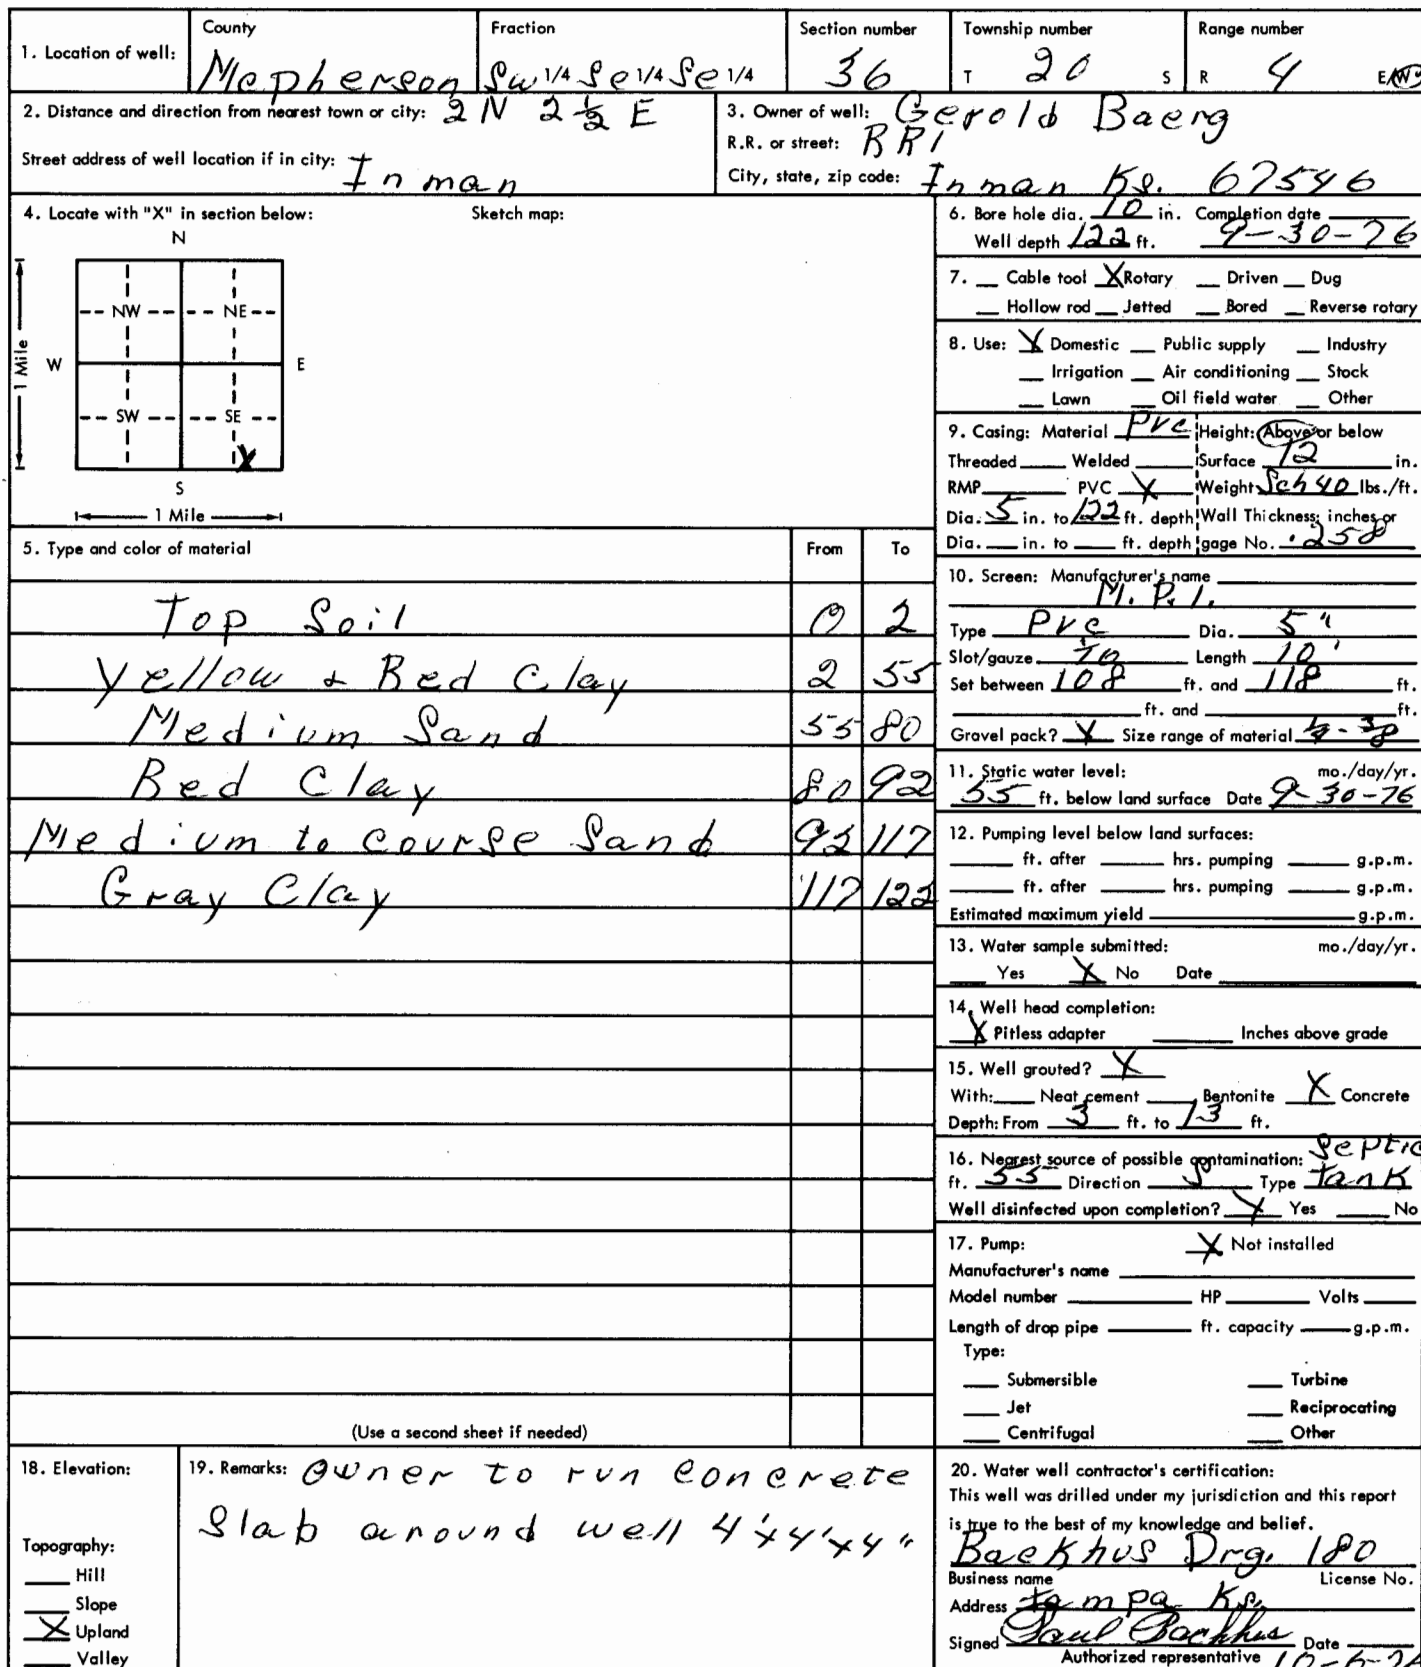 1. Location of well: County Mcpherson Fraction Sw 1/4 Se 1/4 Se 1/4 Section number 36 Township number T 20 S Range number R 4 E/W
2. Distance and direction from nearest town or city: 2 N 2 1/2 E
Street address of well location if in city: Inman
3. Owner of well: Gerold Baerg
R.R. or street: RR1
City, state, zip code: Inman Ks. 67546
4. Locate with "X" in section below: Sketch map:
N
NW NE
W E
1 Mile
SW SE
X
S
1 Mile
5. Type and color of material From To
Top Soil 0 2
Yellow & Red Clay 2 55
Medium Sand 55 80
Red Clay 80 92
Medium to course Sand 92 117
Gray Clay 117 122
(Use a second sheet if needed)
6. Bore hole dia. 10 in. Completion date
Well depth 122 ft. 9-30-76
7. Cable tool X Rotary Driven Dug
Hollow rod Jetted Bored Reverse rotary
8. Use: X Domestic Public supply Industry
Irrigation Air conditioning Stock
Lawn Oil field water Other
9. Casing: Material Pvc Height: Above or below
Threaded Welded Surface 12 in.
RMP PVC X Weight Sch 40 lbs./ft.
Dia. 5 in. to 122 ft. depth Wall Thickness: inches or
Dia. in. to ft. depth gage No. .258
10. Screen: Manufacturer's name
M.P.I.
Type Pvc Dia. 5"
Slot/gauze Length 10'
Set between 108 ft. and 118 ft.
ft. and ft.
Gravel pack? X Size range of material 1/4 - 3/8
11. Static water level: mo./day/yr.
55 ft. below land surface Date 9-30-76
12. Pumping level below land surfaces:
ft. after hrs. pumping g.p.m.
ft. after hrs. pumping g.p.m.
Estimated maximum yield g.p.m.
13. Water sample submitted: mo./day/yr.
Yes X No Date
14. Well head completion:
X Pitless adapter Inches above grade
15. Well grouted? X
With: Neat cement Bentonite X Concrete
Depth: From 3 ft. to 13 ft.
16. Nearest source of possible contamination: Septic
ft. 55 Direction S Type tank
Well disinfected upon completion? X Yes No
17. Pump: X Not installed
Manufacturer's name
Model number HP Volts
Length of drop pipe ft. capacity g.p.m.
Type:
Submersible Turbine
Jet Reciprocating
Centrifugal Other
18. Elevation:
Topography:
Hill
Slope
X Upland
Valley
19. Remarks: Owner to run concrete
Slab around well 4'x4'x4"
20. Water well contractor's certification:
This well was drilled under my jurisdiction and this report
is true to the best of my knowledge and belief.
Backhus Drg. 180
Business name License No.
Address tampa Ks.
Signed Paul Backhus Date
Authorized representative 10-6-76